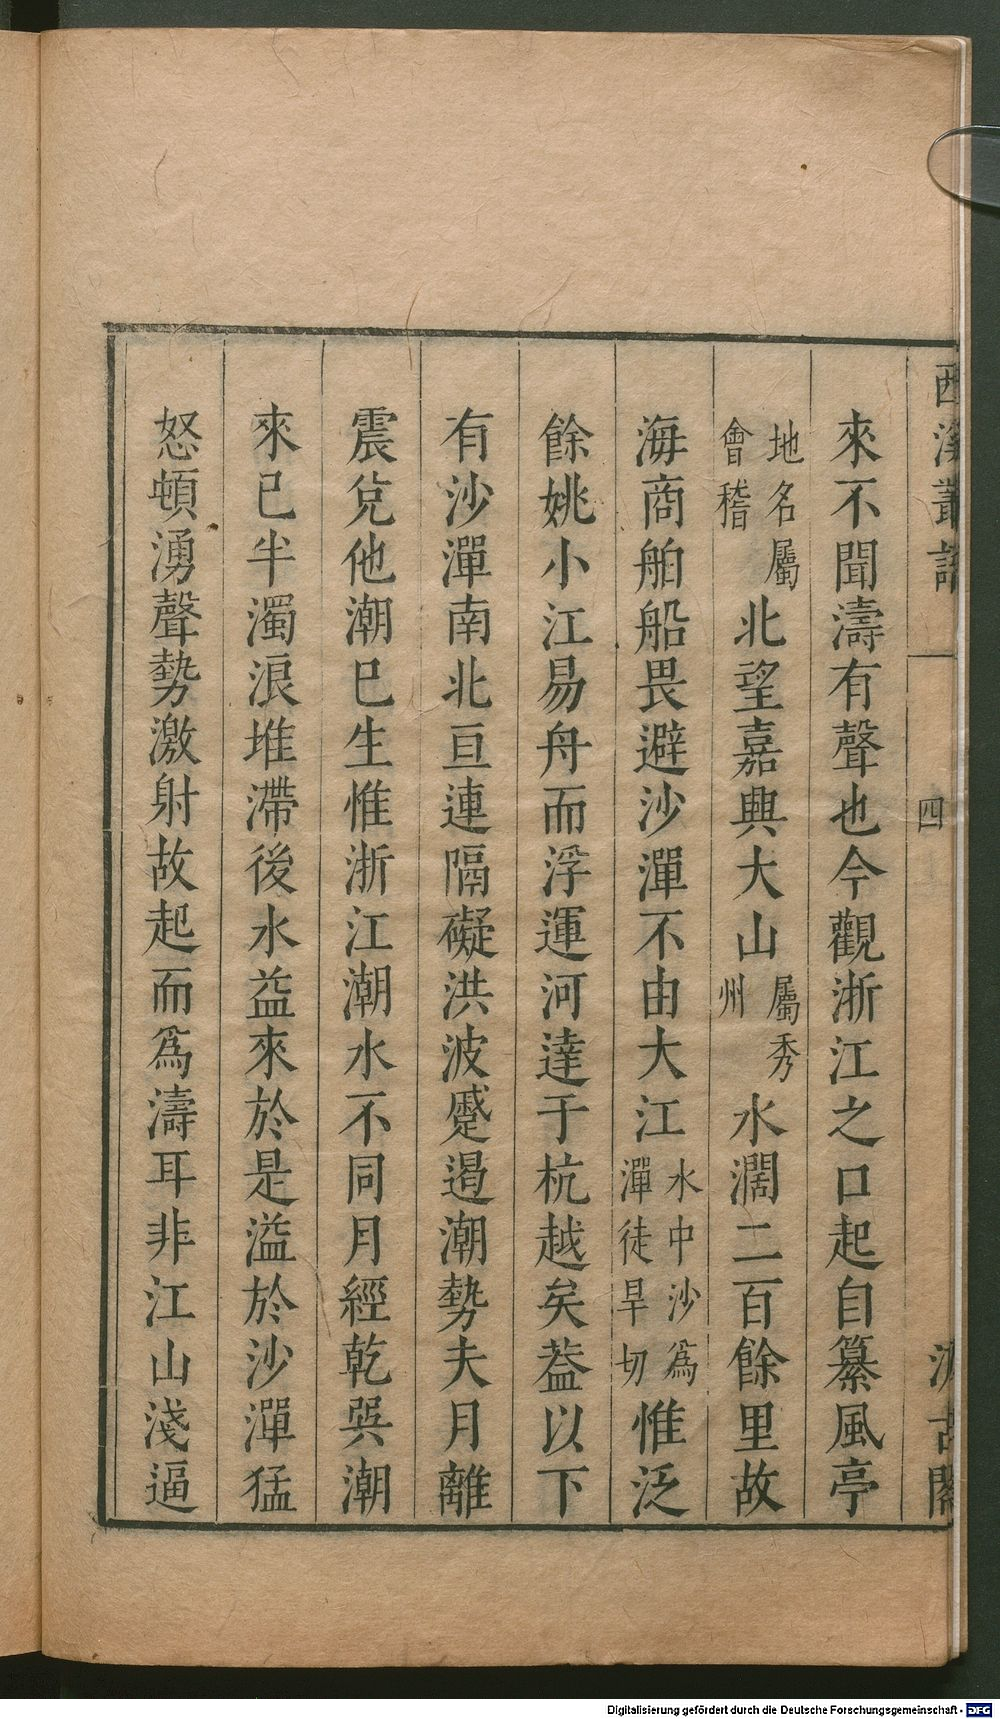 西溪叢語
一
四
汲古閣
來不聞濤有聲也今觀浙江之口起自纂風亭
地名屬會稽北望嘉興大山屬秀州水濶二百餘里故
海商舶船畏避沙潬不由大江水中沙為潬徒旱切惟泛
餘姚小江易舟而浮運河達于杭越矣葢以下
有沙潬南北亘連隔礙洪波蹙遏潮勢夫月離
震兌他潮巳生惟浙江潮水不同月經乾巽潮
來已半濁浪堆滯後水益來於是溢於沙潬猛
怒頓湧聲勢激射故起而爲濤耳非江山淺逼
Digitalisierung gefördert durch die Deutsche Forschungsgemeinschaft - DFG